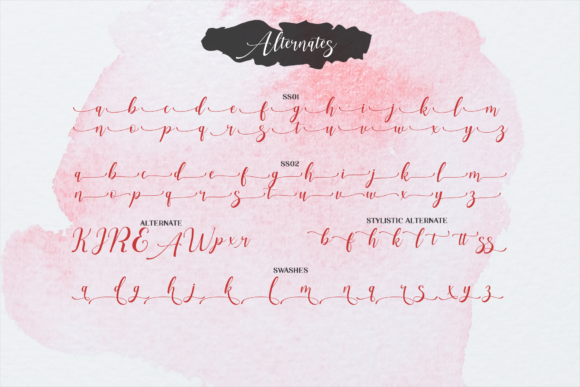 Alternates
SS01
a b c d e f g h i j k l m
n o p q r s t u v w x y z
SS02
a b c d e f g h i j k l m
n o p q r s t u v w x y z
ALTERNATE
K I R E A W p x r
STYLISTIC ALTERNATE
b f h k l t tt ss
SWASHES
a d g h j k l m n q r s x y z